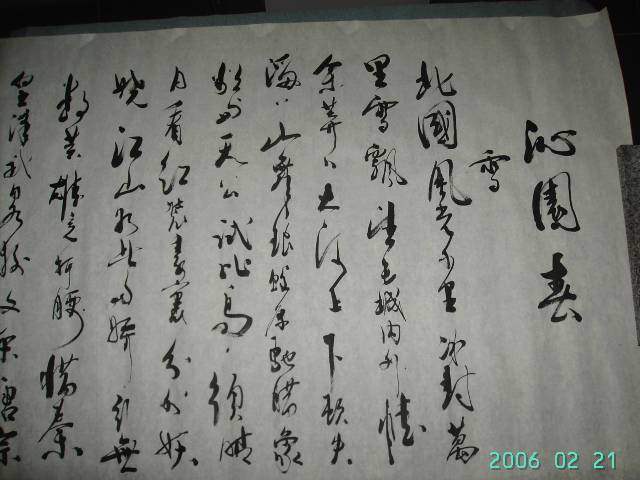 沁園春
雪
北國風光千里冰封萬
里雪飄望長城內外惟
余莽〻大河上下頓失
滔〻山舞銀蛇原馳臘象
欲与天公試比高須晴
日看紅裝素裹分外妖
嬈江山如此多嬌引無
數英雄竞折腰惜秦
皇漢武略輸文采唐宗
2006 02 21